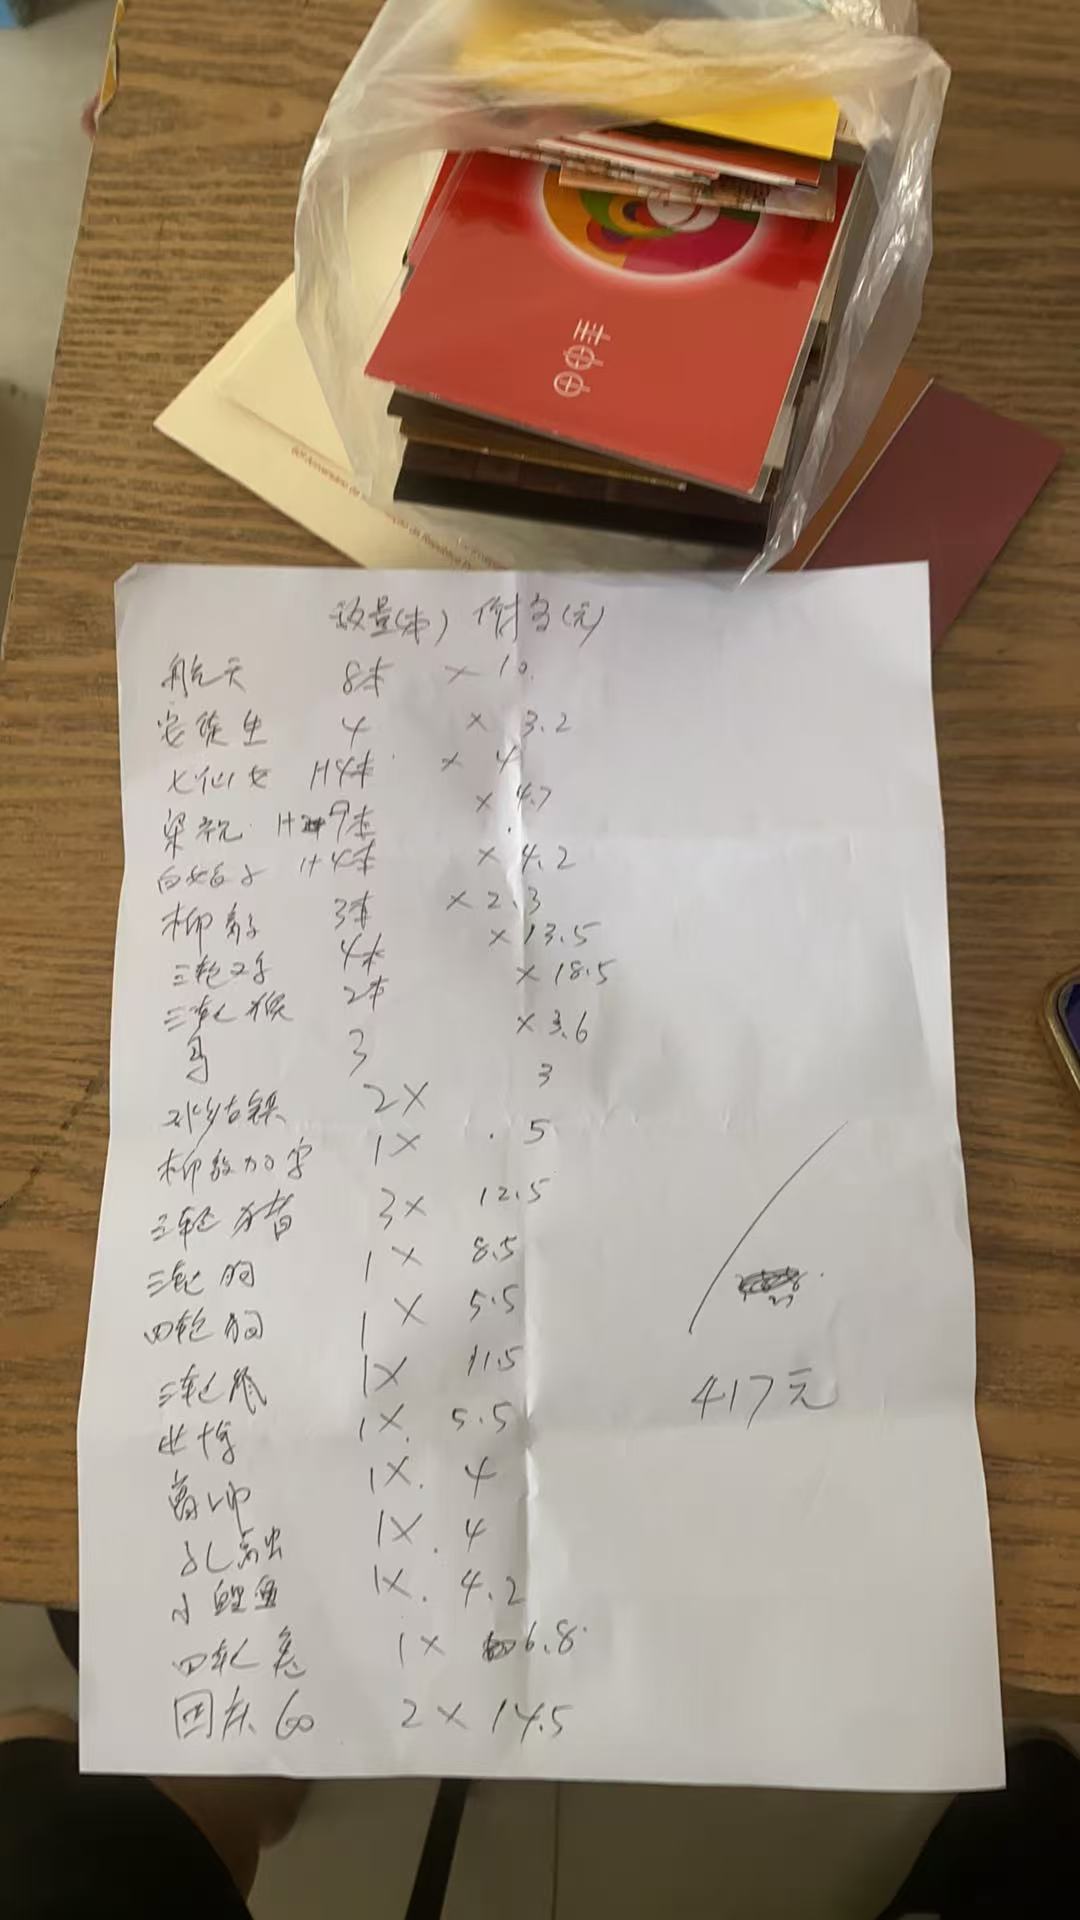 60º Aniversário da Implantação da República P
数量(本) 价格(元)
航天 8本 × 10.
安徒生 4 × 3.2
七仙女 1+4本 × 4
梁祝 1+9本 × 4.7
白娘子 1+4本 × 4.2
柳毅 3本 × 2.3
三轮 4本 × 13.5
三轮猴 2本 × 18.5
马 3 × 3.6
水乡古镇 2× 3
柳毅加字 1× 5
三轮猪 3× 12.5
三轮狗 1× 8.5
四轮狗 1 × 5.5
三轮鼠 1× 11.5
世博 1× 5.5
1× 4
孔融 1× 4
小鲤鱼 1× 4.2
四轮兔 1× 6.8
国庆60 2× 14.5
417元